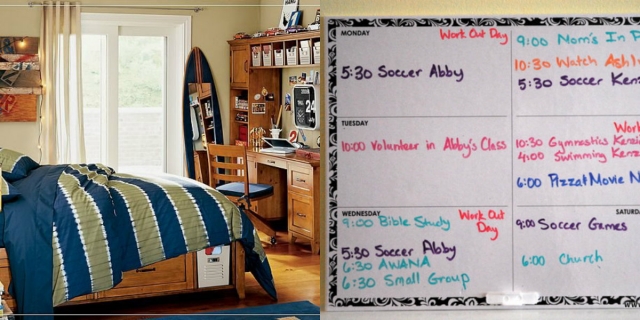 24
MONDAY
Work Out Day
5:30 Soccer Abby
9:00 Mom's In
10:30 Watch
5:30 Soccer
TUESDAY
10:00 Volunteer in Abby's Class
10:30 Gymnastics
4:00 Swimming
6:00 Pizza & Movie
WEDNESDAY
9:00 Bible Study
Work Out
Day
5:30 Soccer Abby
6:30 AWANA
6:30 Small Group
9:00 Soccer Games
6:00 Church